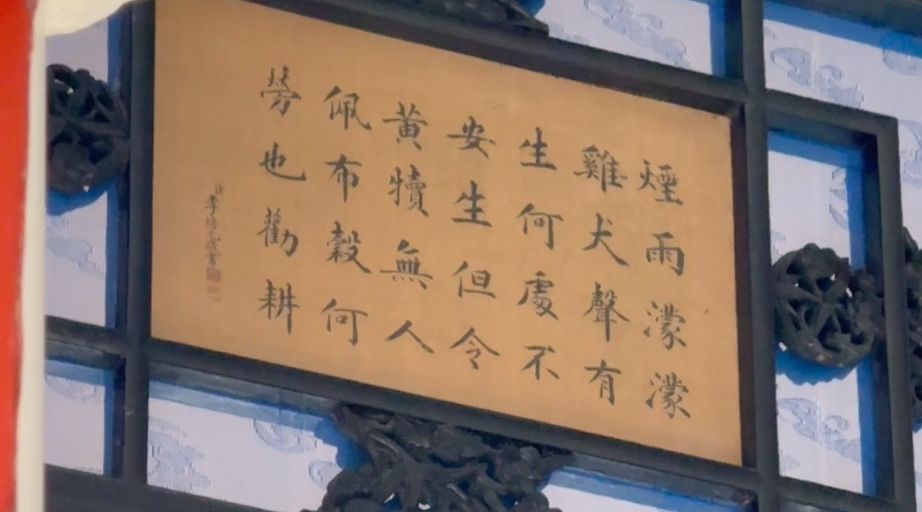 煙雨濛濛
雞犬聲有
生何處不
安生但令
黃犢無人
佩布穀何
勞也勸耕